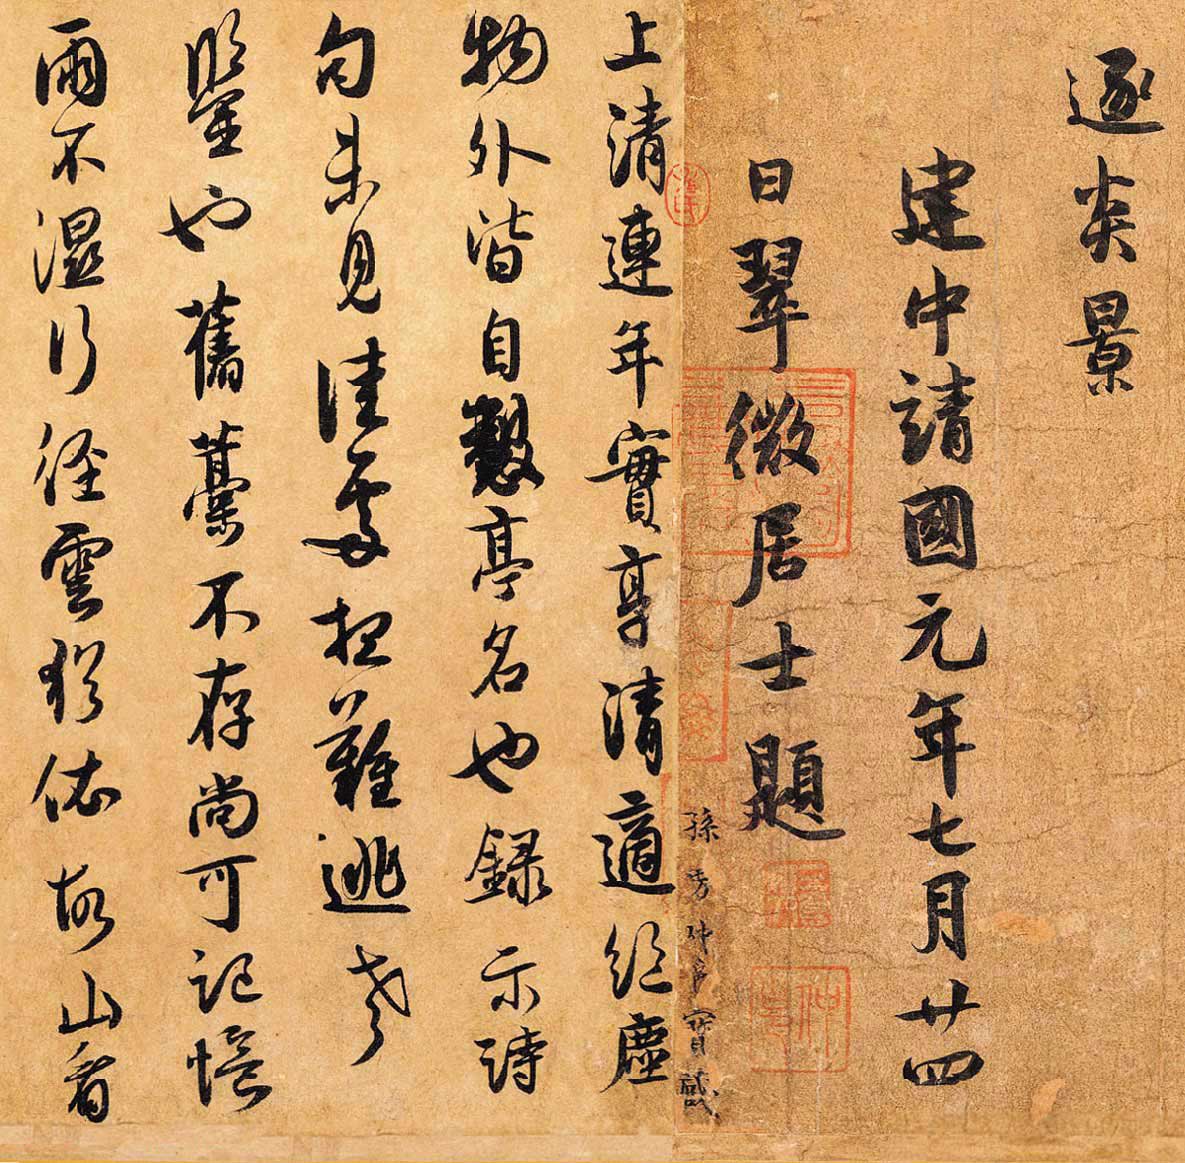 逐炎景
建中靖國元年七月廿四
日翠微居士題
孫寶藏
上清連年實享清適絕塵
物外皆自亭名也錄示詩
句未見佳處拒難逃老
鑒也舊藁不存尚可記憶
雨不濕行徑雲猶依故山看